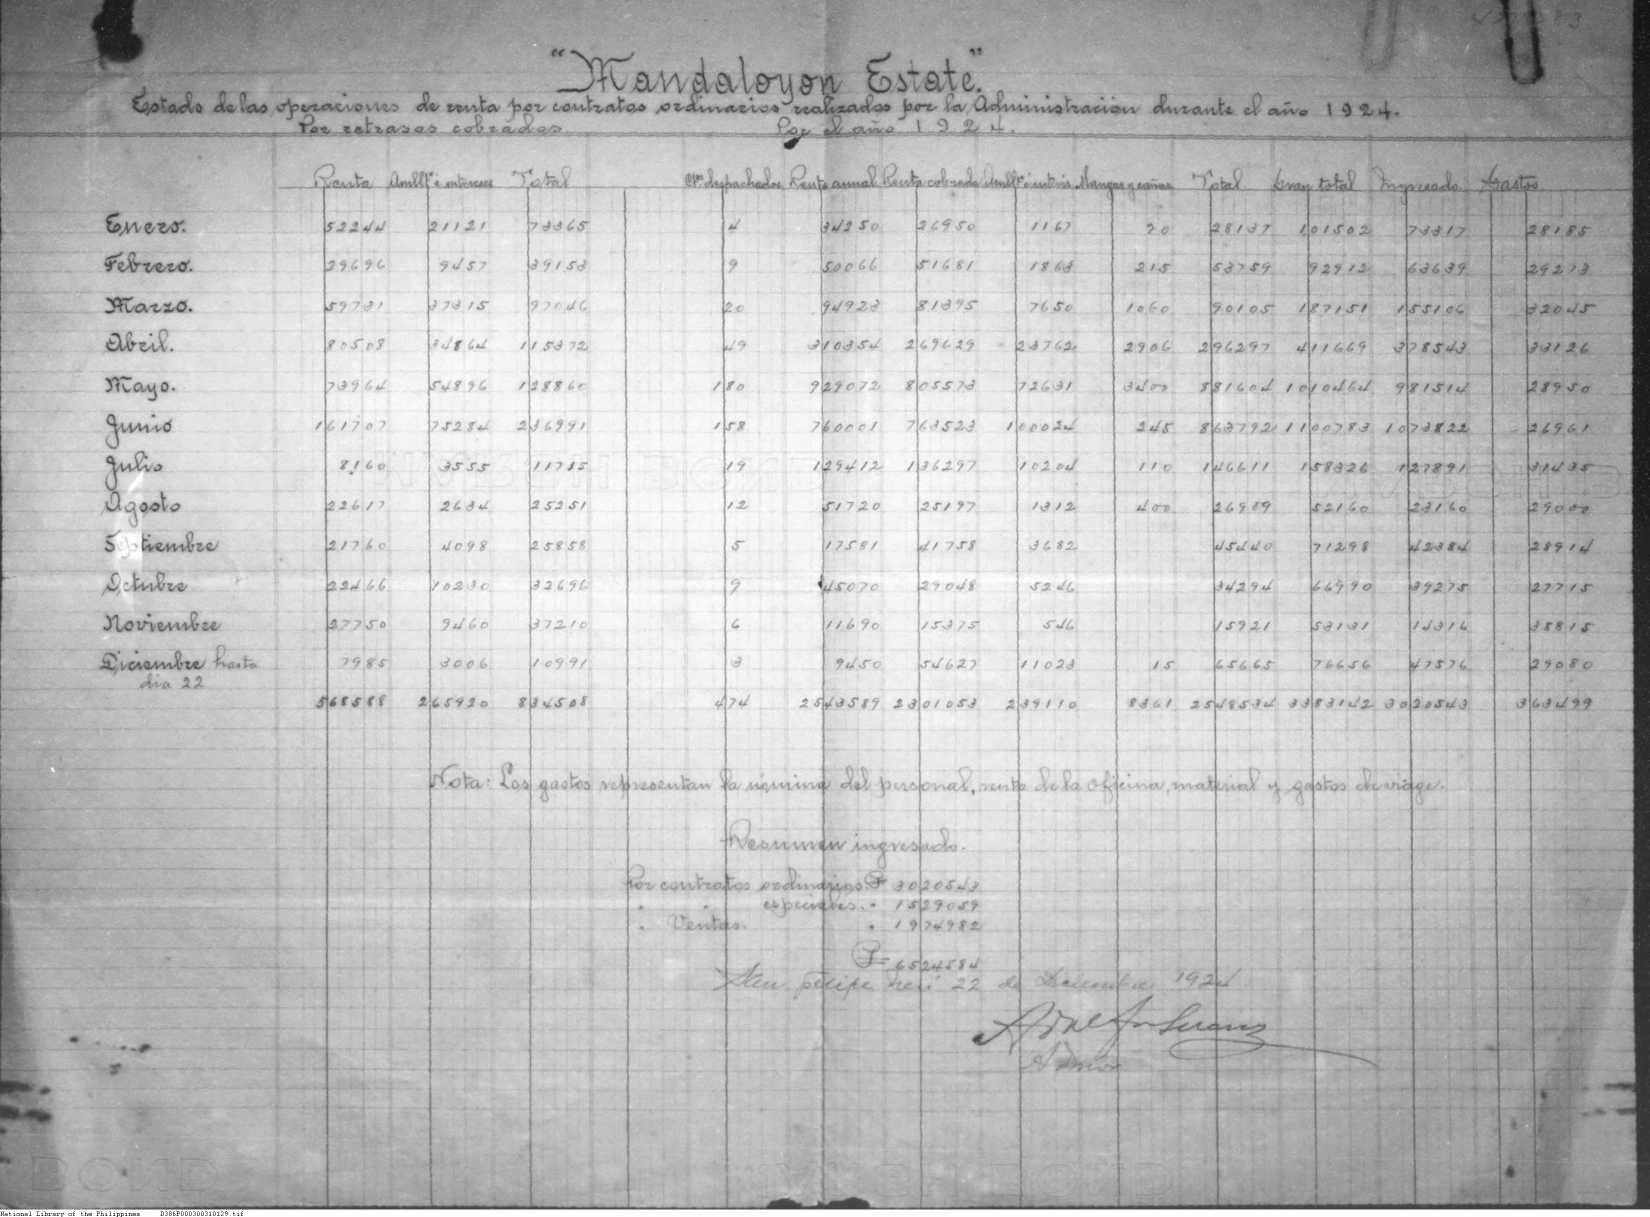 "Mandaloyon Estate".
Estado de las operaciones de renta por contratos ordinarios realizados por la Administración durante el año 1924.
Por retrasos cobrados Por el año 1924.
Renta Amllº é intereses Total Nº despachados Renta anual Renta cobrada Amllº é interés Mangas y cañas Total Gran total Ingresado Gastos
Enero. 52244 21121 73365 4 34250 26950 1167 20 28137 101502 73317 28185
Febrero. 29696 9457 39153 9 50066 51681 1863 215 53759 92912 63639 29273
Marzo. 59731 37315 97046 20 94923 81395 7650 1060 90105 187151 155106 32045
Abril. 80508 34864 115372 49 310354 269629 23762 2906 296297 411669 378543 33126
Mayo. 73964 54896 128860 180 929072 805573 72631 3400 881604 1010464 981514 28950
Junio 161707 75284 236991 158 760001 763523 100024 245 863792 1100783 1073822 26961
Julio 8160 3555 11715 19 129412 136297 10204 110 146611 158326 127891 31435
Agosto 22617 2634 25251 12 51720 25197 1312 400 26909 52160 23160 29000
Septiembre 21760 4098 25858 5 17581 41758 3682 45440 71298 42384 28914
Octubre 22466 10230 32696 9 45070 29048 5246 34294 66990 39275 27715
Noviembre 27750 9460 37210 6 11690 15375 546 15921 53131 14316 38815
Diciembre hasta 7985 3006 10991 3 9450 54627 11023 15 65665 76656 47576 29080
dia 22
568588 265920 834508 474 2543589 2301053 239110 8361 2548534 3383142 3020543 363499
Nota: Los gastos representan la nómina del personal, renta de la oficina, material y gastos de viage.
Resumen ingresado.
Por contratos ordinarios ₱ 3020543
" " especiales. " 1529059
" Ventas. " 1974982
₱ 6524584
San Felipe Neri 22 de Diciembre 1924
Admor
National Library of the Philippines D386P000300310129.tif